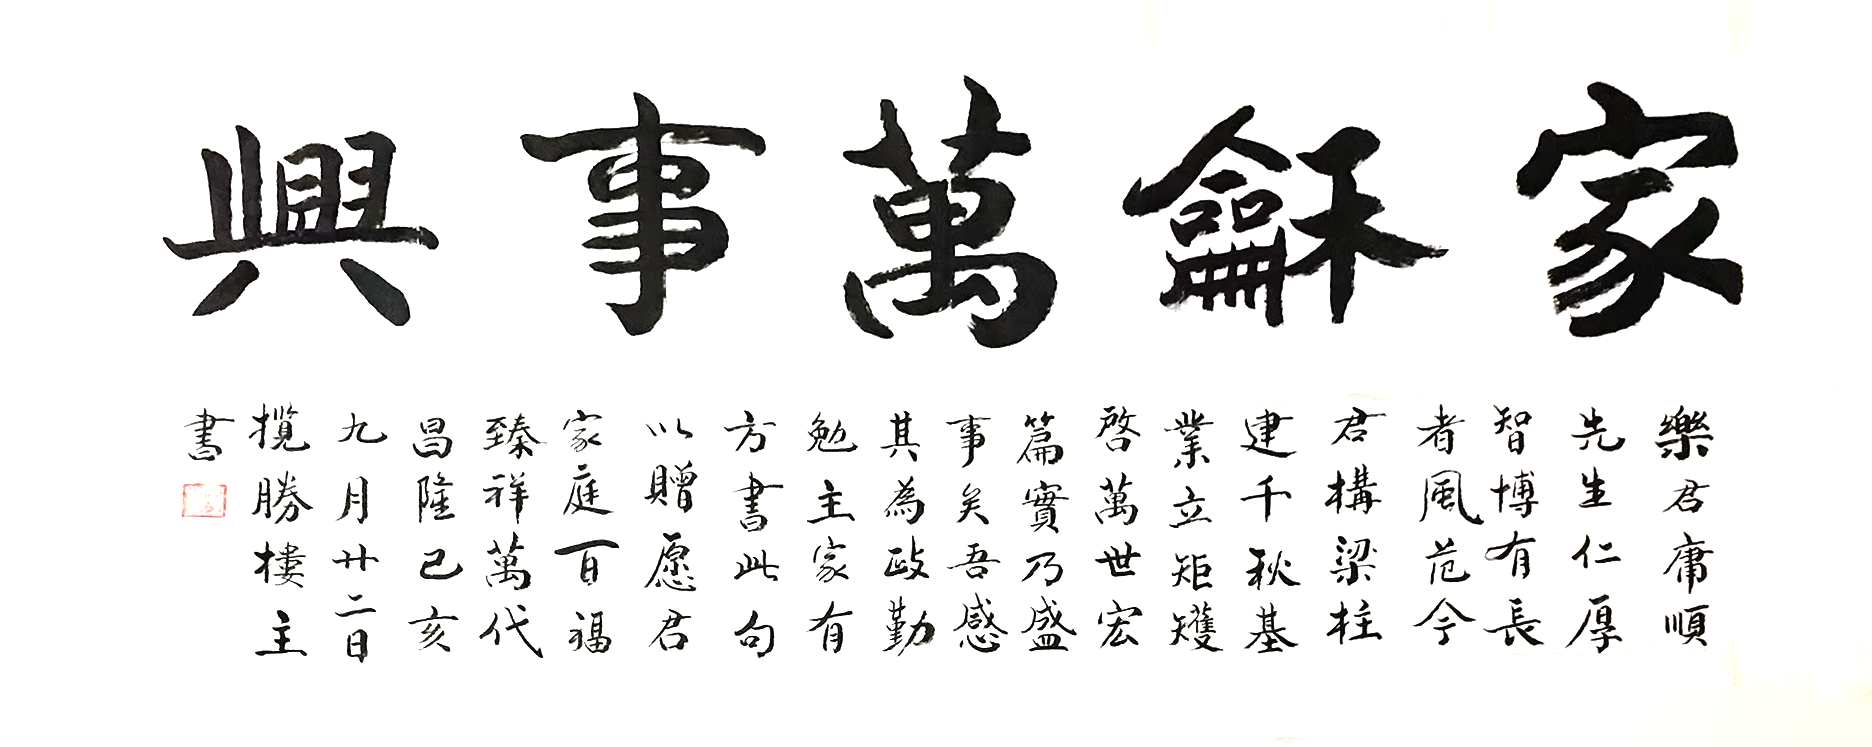 家龢萬事興
樂君庸順
先生仁厚
智博有長
者風范今
君構梁柱
建千秋基
業立矩矱
啓萬世宏
篇實乃盛
事矣吾感
其為政勤
勉主家有
方書此句
以贈愿君
家庭百福
臻祥萬代
昌隆己亥
九月廿二日
攬勝樓主
書